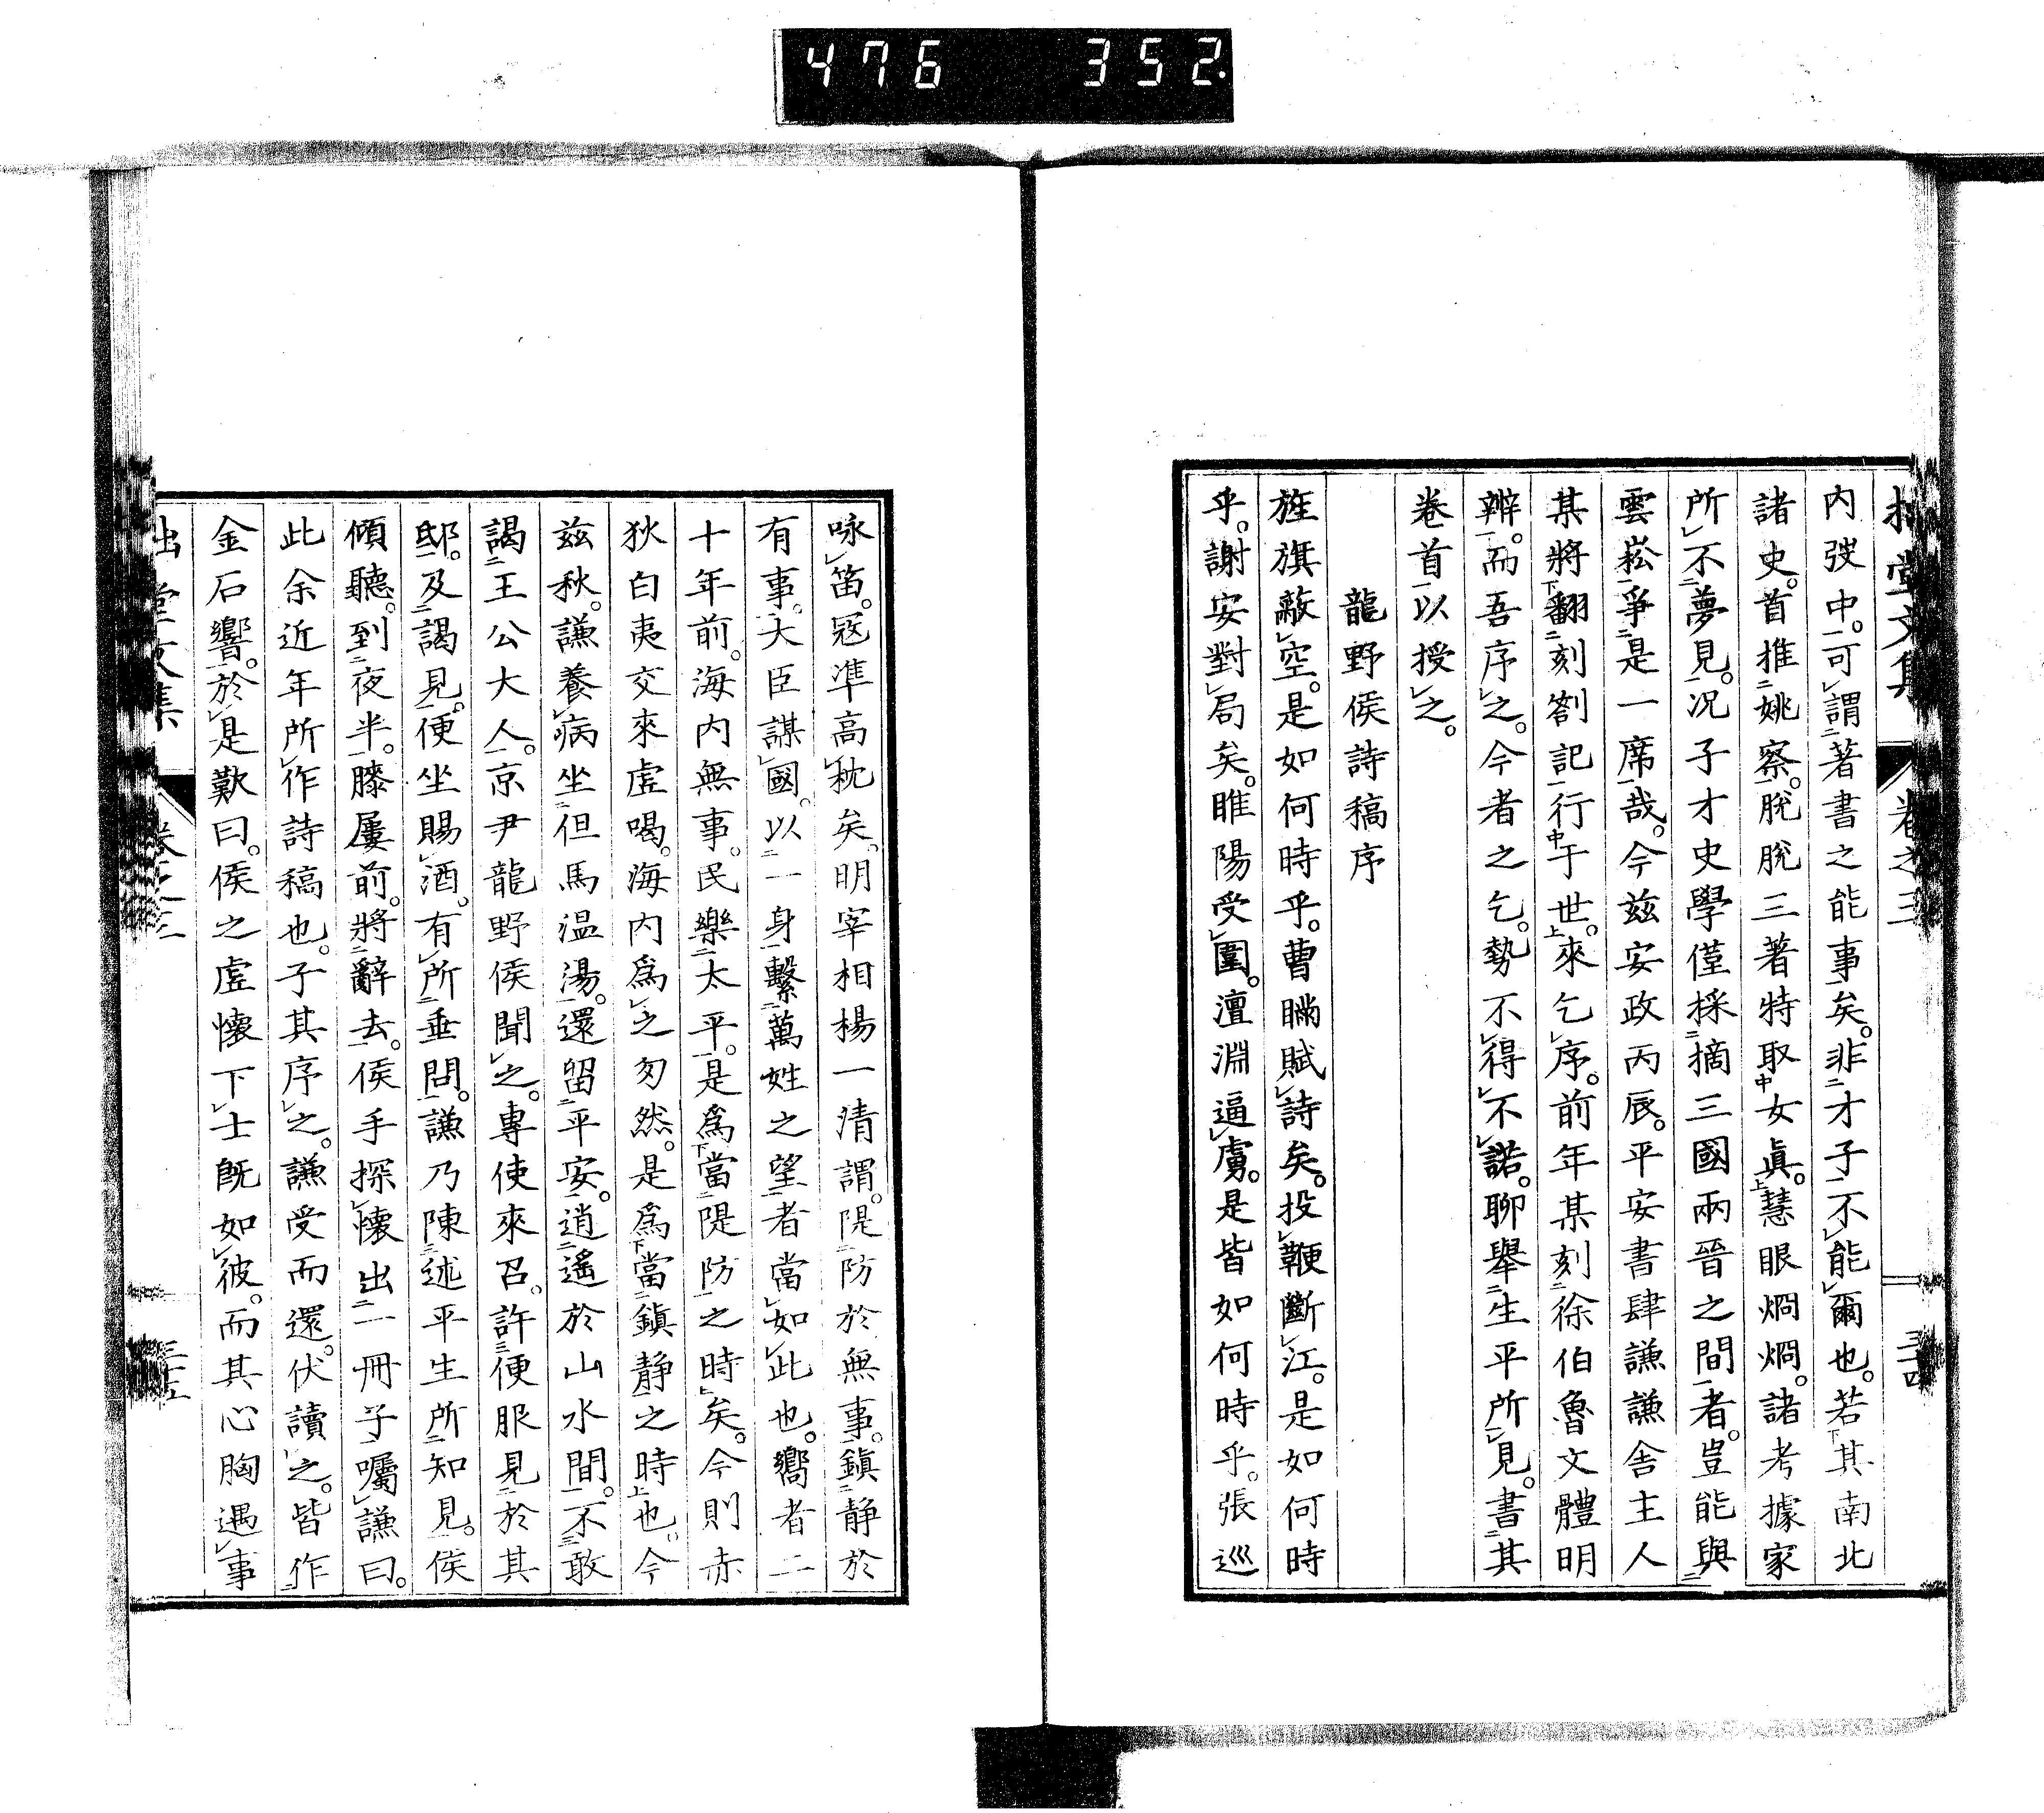 476 352
拙堂文集 卷之三 三十四
内弢中。可謂著書之能事矣。非才子不能爾也。若其南北
諸史。首推姚察。脫脫三著特取女眞。慧眼烱烱。諸考據家
所不夢見。况子才史學僅採摘三國兩晉之間者。豈能與
雲崧爭是一席哉。今兹安政丙辰。平安書肆謙謙舍主人
某將翻刻劄記行于世。來乞序。前年某刻徐伯魯文體明
辨。而吾序之。今者之乞。勢不得不諾。聊舉生平所見。書其
卷首以授之。
龍野侯詩稿序
旌旗蔽空。是如何時乎。曹瞞賦詩矣。投鞭斷江。是如何時
乎。謝安對局矣。睢陽受圍。澶淵逼虜。是皆如何時乎。張巡
咏笛。寇準高枕矣。明宰相楊一清謂。隄防於無事。鎭静於
有事。大臣謀國。以一身繫萬姓之望者當如此也。嚮者二
十年前。海内無事。民樂太平。是爲當隄防之時矣。今則赤
狄白夷交來虛喝。海内爲之匆然。是爲當鎭静之時也。今
兹秋。謙養病坐但馬温湯。還留平安。逍遙於山水間。不敢
謁王公大人。京尹龍野侯聞之。專使來召。許便服見於其
邸。及謁見。便坐賜酒。有所垂問。謙乃陳述平生所知見。侯
傾聽。到夜半。膝屢前。將辭去。侯手探懷出一冊子囑謙曰。
此余近年所作詩稿也。子其序之。謙受而還。伏讀之。皆作
金石響。於是歎曰。侯之虛懷下士旣如彼。而其心胸遇事
拙堂文集 卷之三 三十五